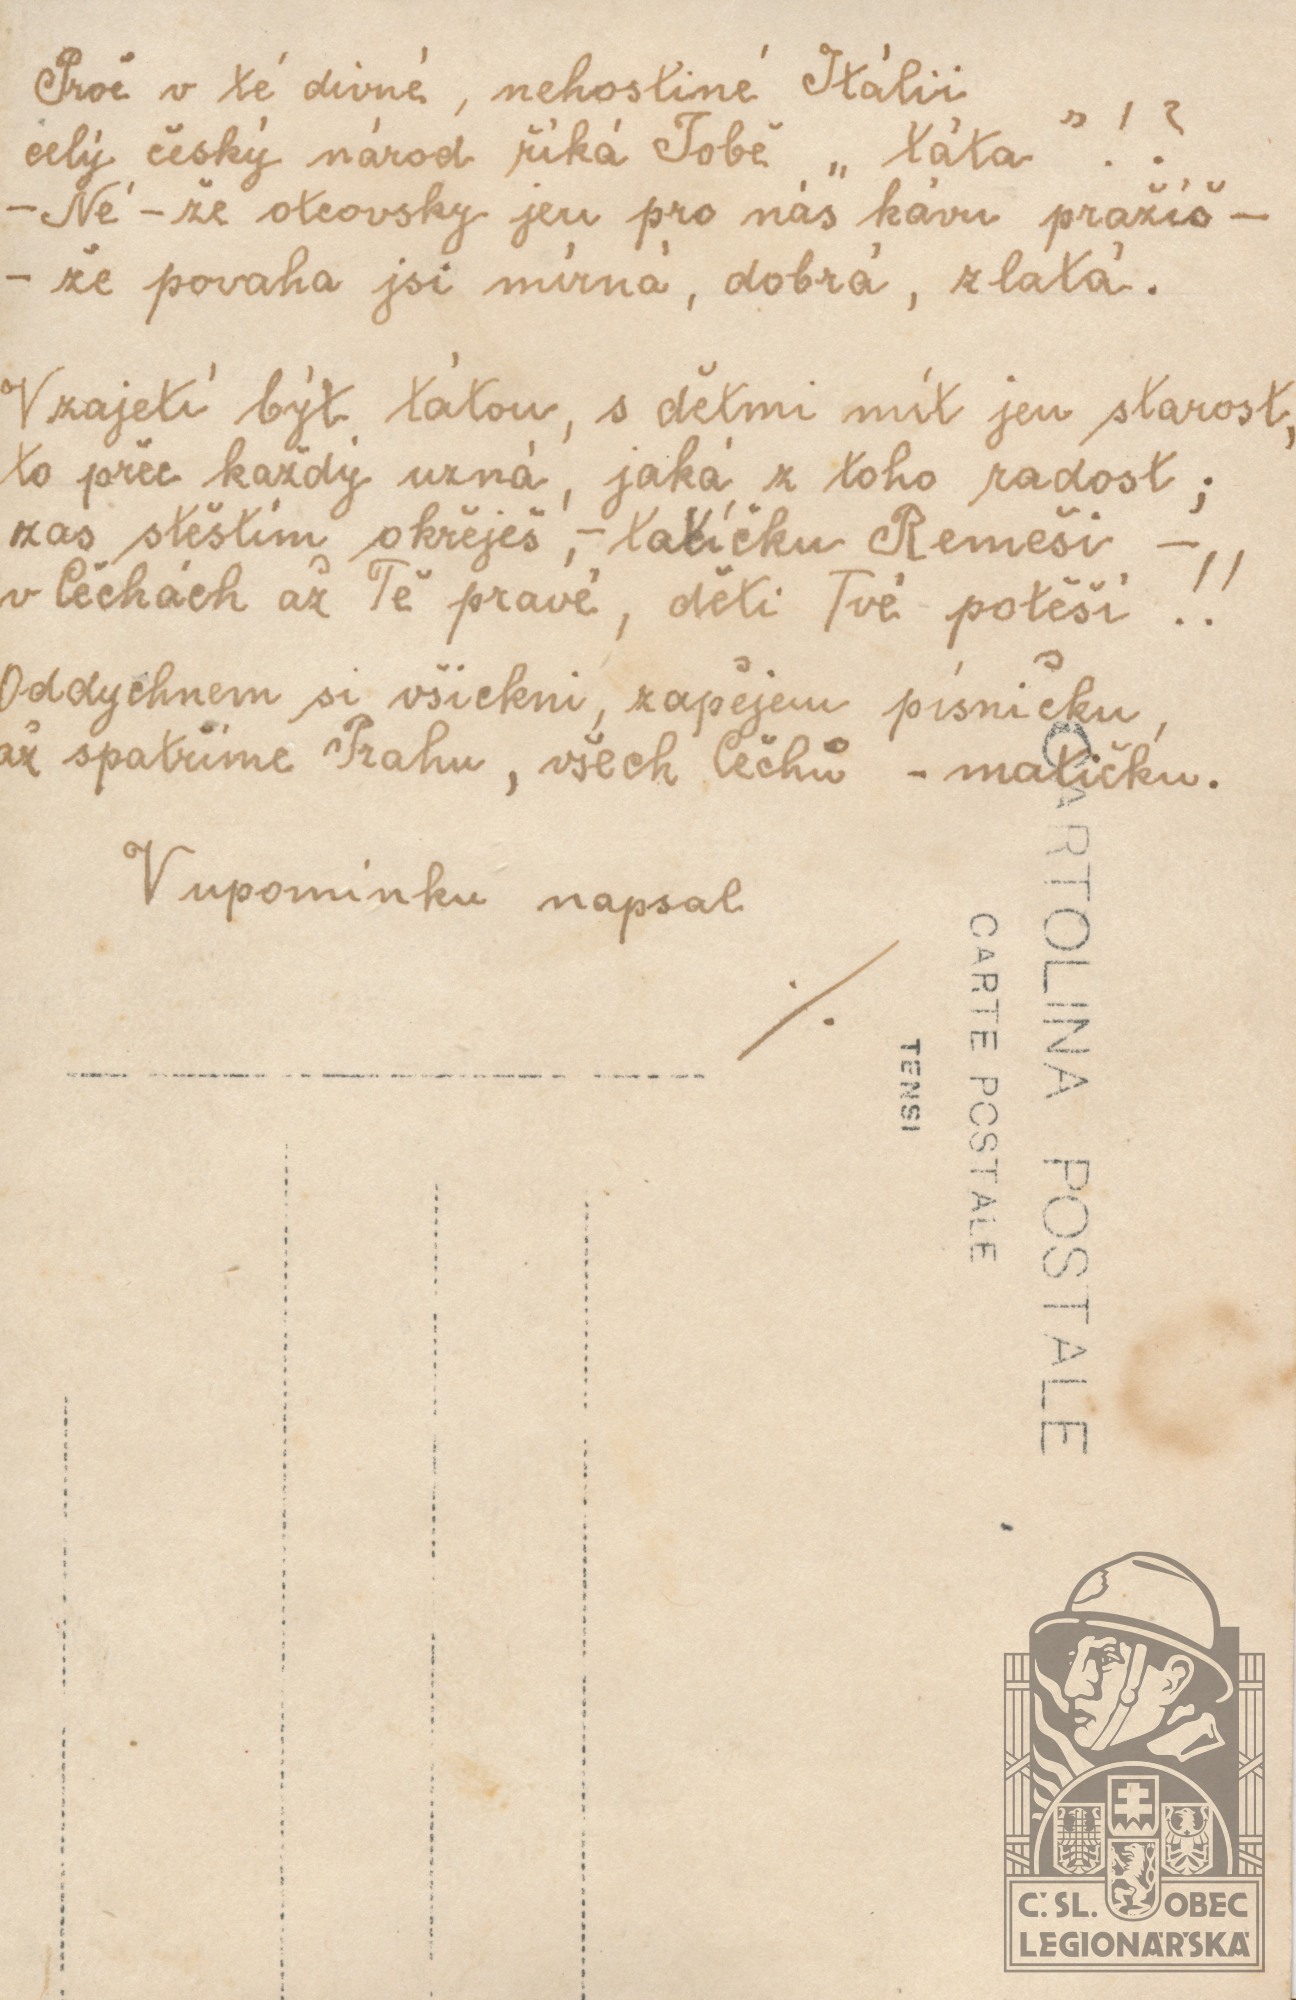 Proč v té divné, nehostiné Itálii
celý český národ říká Tobě „táta" !?
- Né - že otcovsky jen pro nás kávu pražíš -
- že povaha jsi mírná, dobrá, zlatá.
V zajetí být tátou, s dětmi mít jen starost,
to přec každý uzná, jaká z toho radost;
zas štěstím okřeješ, - tatíčku Remeši -
v Čechách až Tě pravé, děti Tvé potěší !!
Oddychnem si všickni, zapějem písničku,
až spatříme Prahu, všech Čechů - matičku.
V upomínku napsal
./.
CARTOLINA POSTALE
CARTE POSTALE
TENSI
Č. SL. OBEC
LEGIONÁŘSKÁ